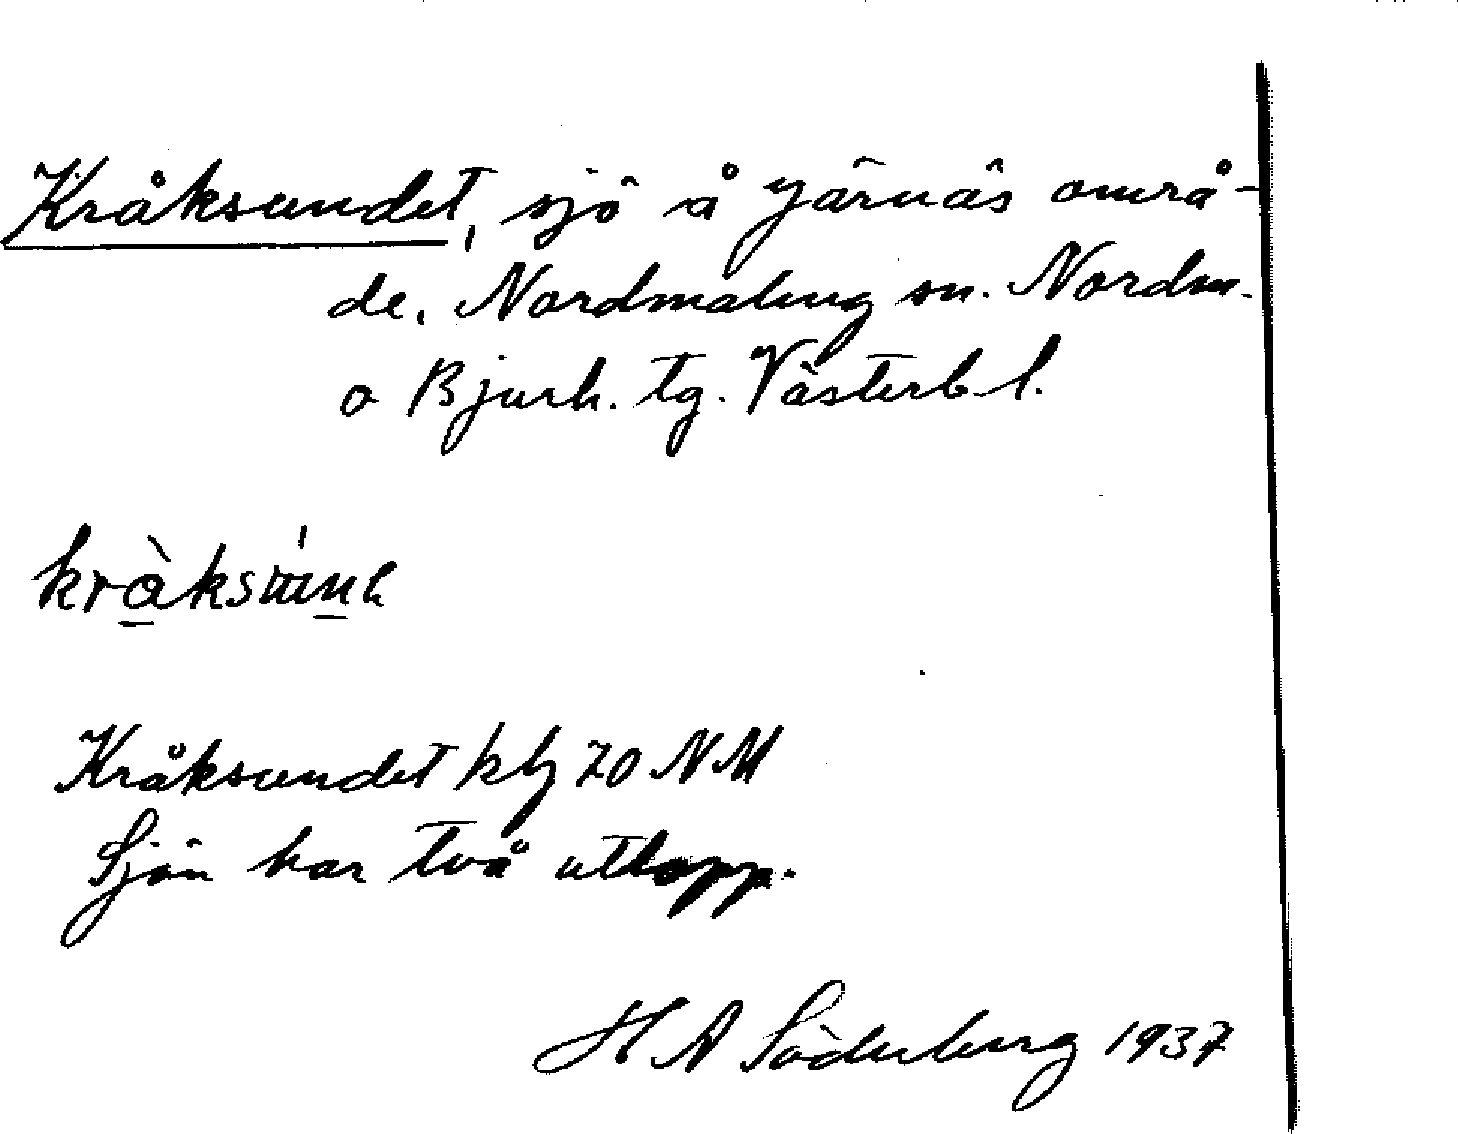 Kråksundet, sjö å Järnäs områ-
de, Nordmaling sn. Nordm.
o Bjurh. tg. Västerb. l.
Kråksundet kbg 70 NM
Sjön har två utlopp.
H A Söderberg 1937